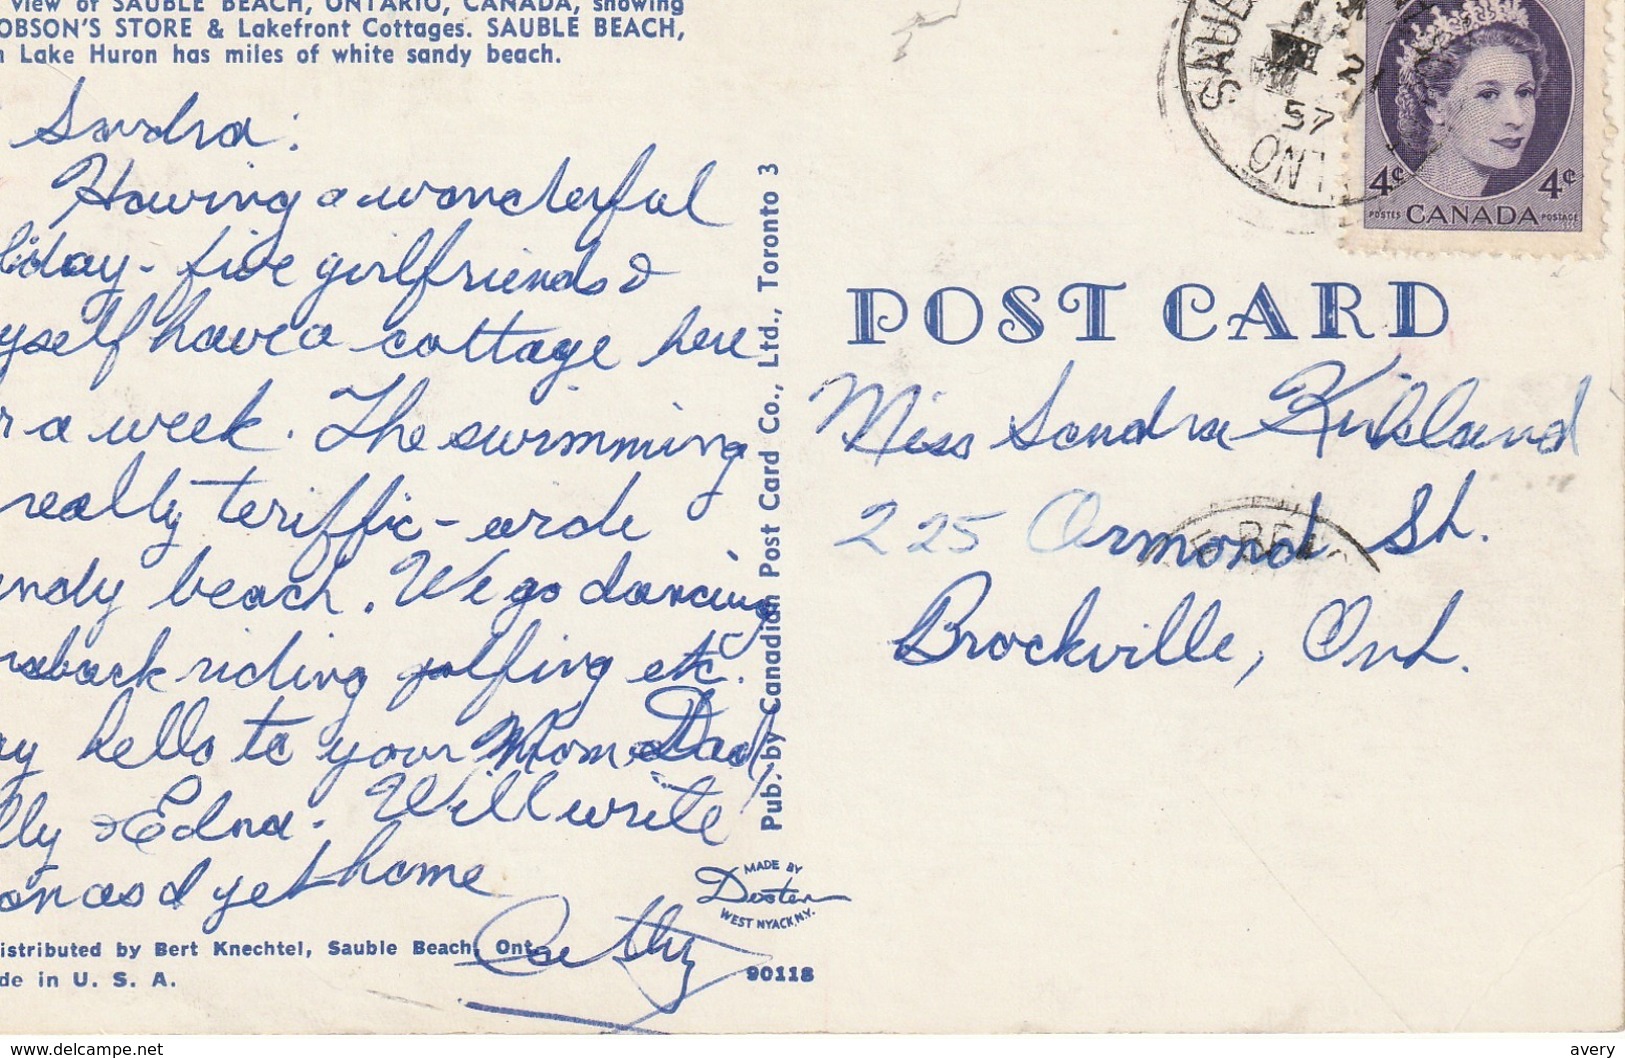 view of SAUBLE BEACH, ONTARIO, CANADA, showing
OBSON'S STORE & Lakefront Cottages. SAUBLE BEACH,
n Lake Huron has miles of white sandy beach.
Sandra:
Having a wonderful
liday - five girlfriends &
yself have a cottage here
r a week. The swimming
really teriffic - wide
ndy beach. We go dancing
rseback riding golfing etc.
ay hello to your Mom & Dad,
lly & Edna. Will write
on as I get home
Cathy
Distributed by Bert Knechtel, Sauble Beach, Ont.
de in U. S. A.
Pub. by Canadian Post Card Co., Ltd., Toronto 3
MADE BY
Dexter
WEST NYACK, N.Y.
90118
SAUB
21
57
ONT
4¢ 4¢
POSTES CANADA POSTAGE
POST CARD
Miss Sandra Kirkland
225 Ormond St.
Brockville, Ont.
www.delcampe.net
avery